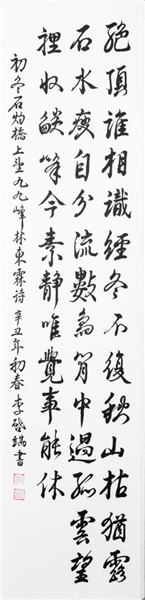 絕頂誰相識經冬不復秋山枯猶露
石水瘦自分流數鳥笻中過孤雲望
裡收皤峰今素靜唯覺事能休
初冬石灼橋上望九九峰林東霖诗 辛丑年初春 李啓端書